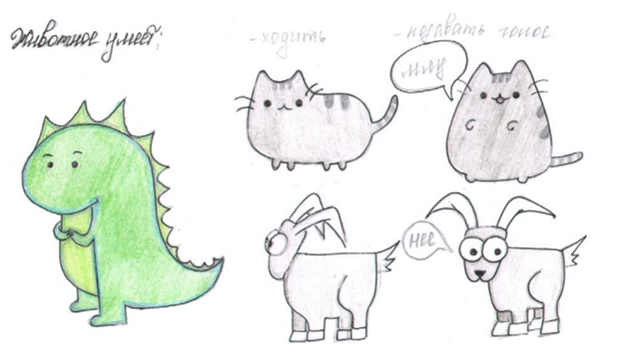 Животное умеет:
- ходить
- подавать голос
мяу
мее